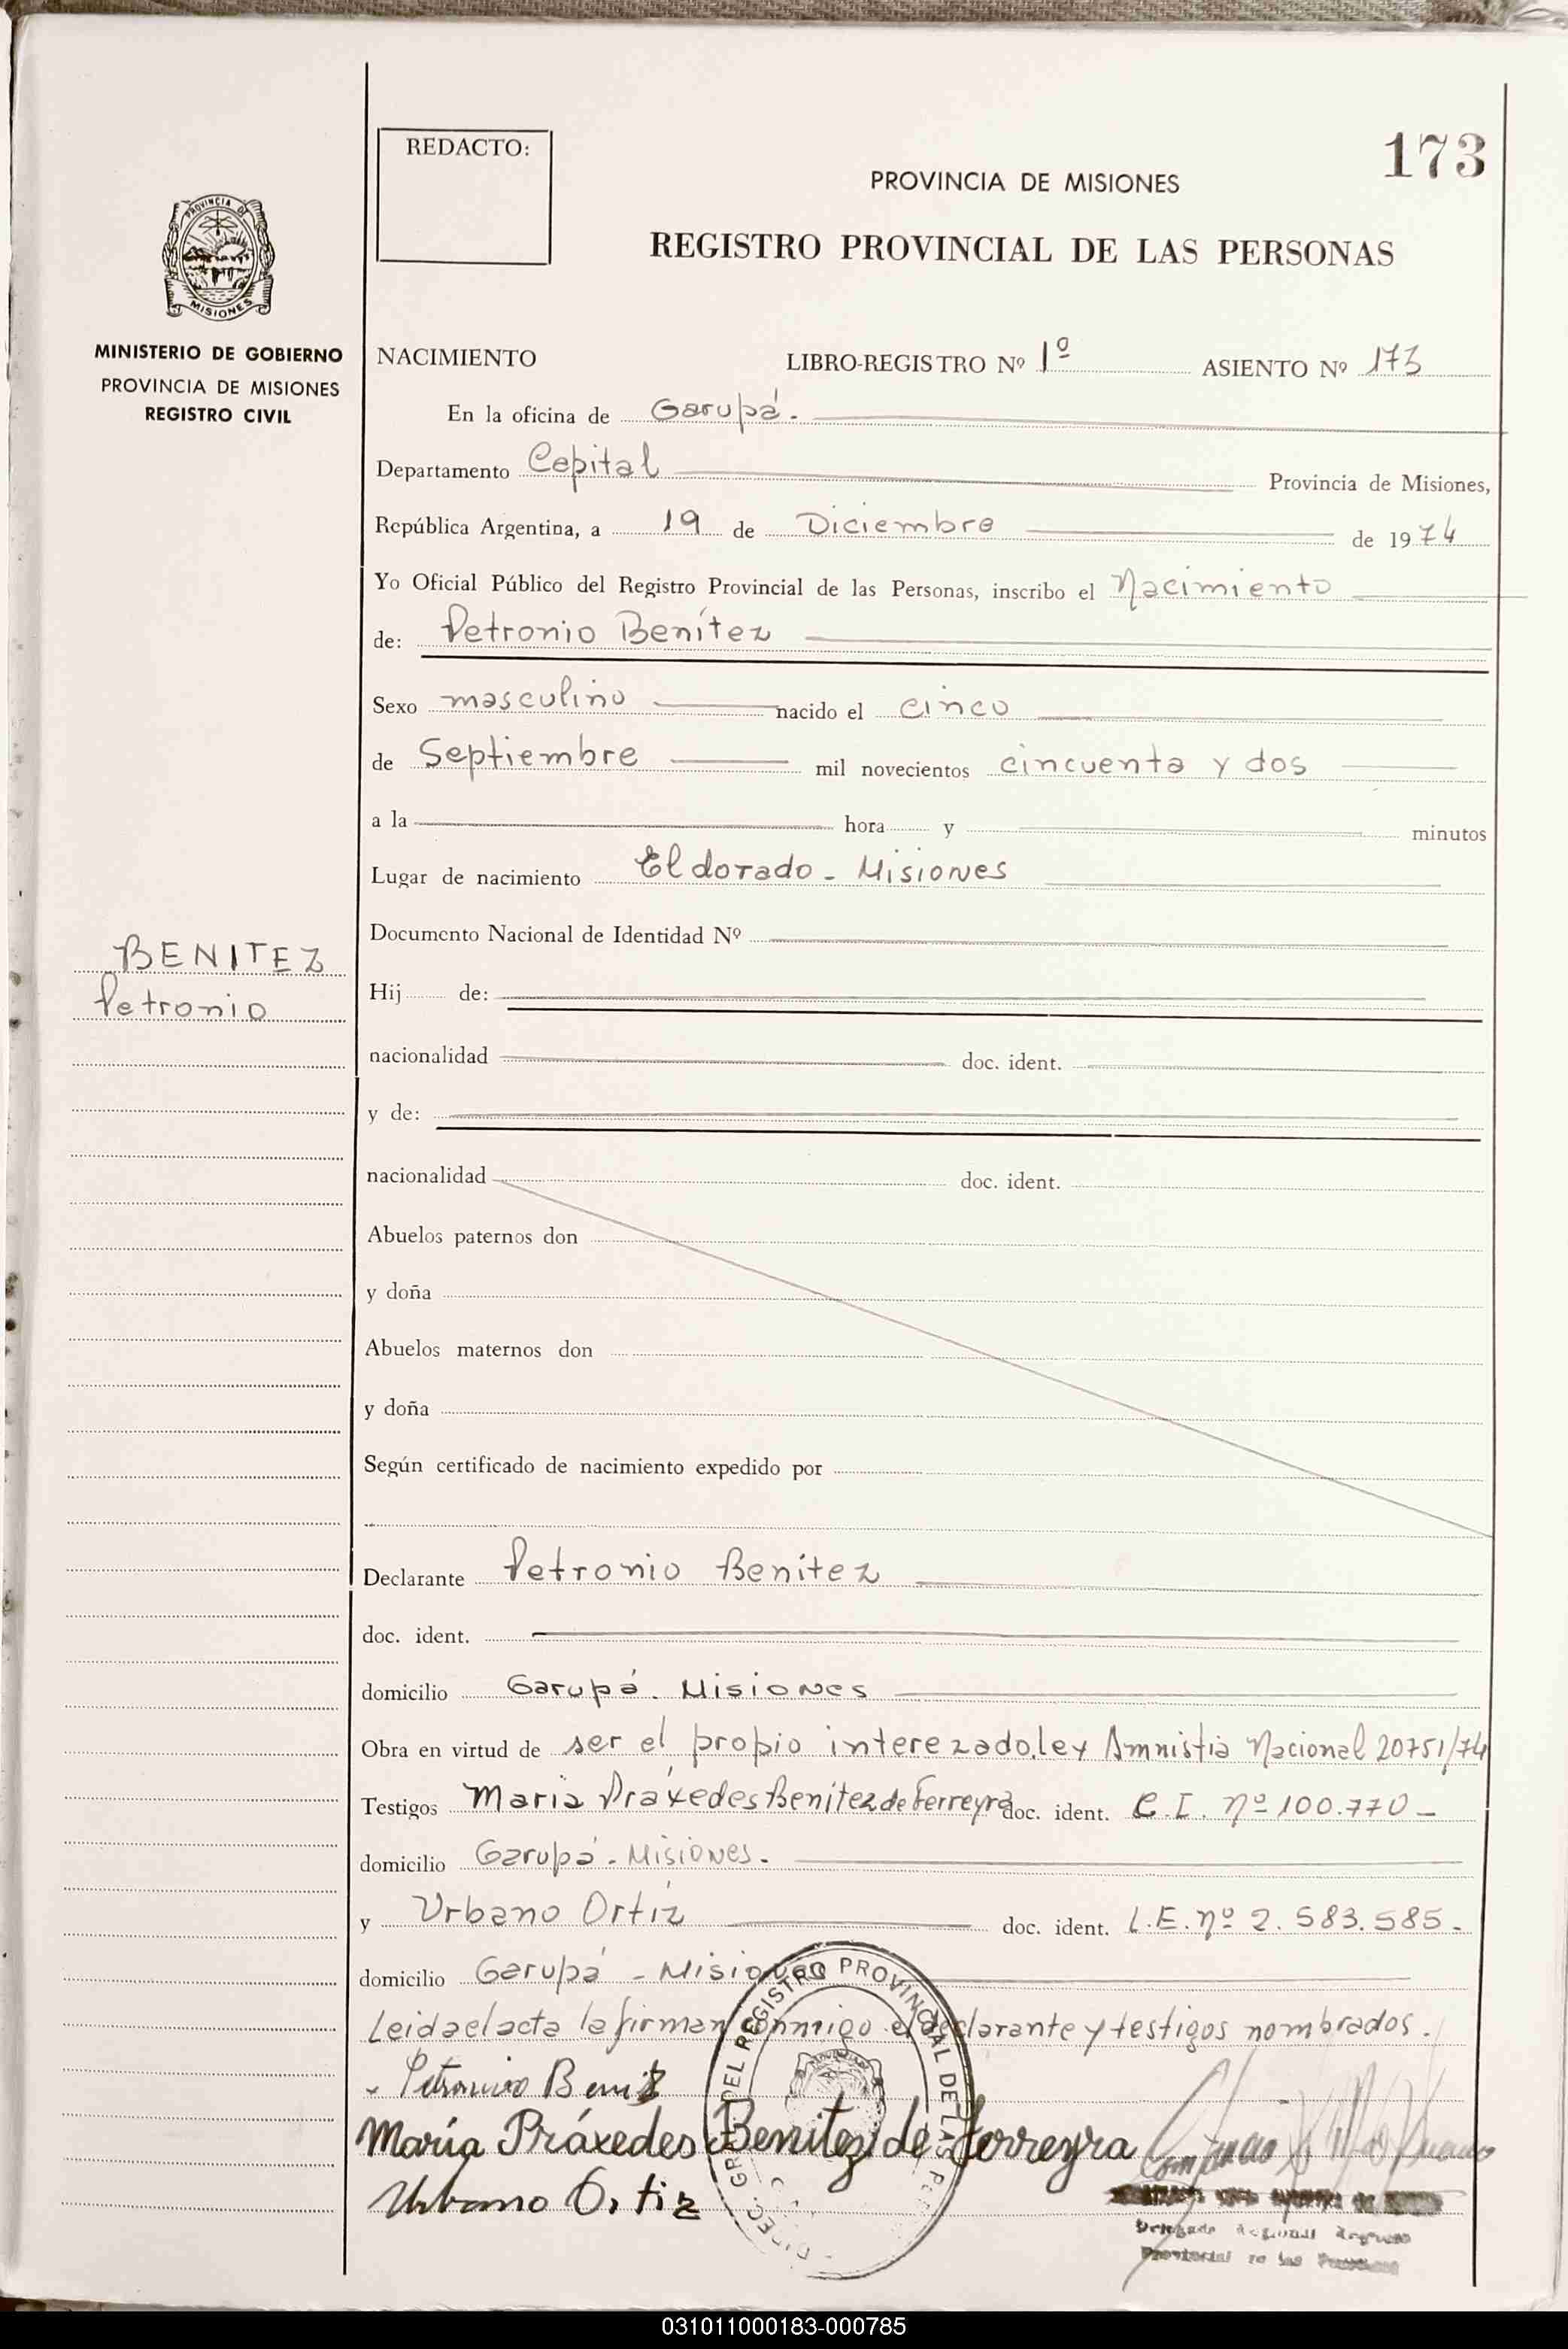 173
REDACTO:
PROVINCIA DE MISIONES
REGISTRO PROVINCIAL DE LAS PERSONAS
PROVINCIA DE
MISIONES
MINISTERIO DE GOBIERNO
PROVINCIA DE MISIONES
REGISTRO CIVIL
NACIMIENTO LIBRO-REGISTRO Nº 1º ASIENTO Nº 173
En la oficina de Garupá.
Departamento Cepital Provincia de Misiones,
República Argentina, a 19 de Diciembre de 1974
Yo Oficial Público del Registro Provincial de las Personas, inscribo el Nacimiento
de: Petronio Benítez
Sexo masculino nacido el cinco
de Septiembre mil novecientos cincuenta y dos
a la hora y minutos
Lugar de nacimiento Eldorado - Misiones
Documento Nacional de Identidad Nº
BENITEZ
Petronio
Hij de:
nacionalidad doc. ident.
y de:
nacionalidad doc. ident.
Abuelos paternos don
y doña
Abuelos maternos don
y doña
Según certificado de nacimiento expedido por
Declarante Petronio Benitez
doc. ident.
domicilio Garupá. Misiones
Obra en virtud de ser el propio interezado, ley Amnistia Nacional 20751/74
Testigos Maria Práxedes Benitez de Ferreyra doc. ident. C.I. nº 100.770 -
domicilio Garupá - Misiones.
y Urbano Ortiz doc. ident. L.E. nº 2.583.585.
domicilio Garupá - Misiones
Leida el acta la firman conmigo el declarante y testigos nombrados.
Petronio Benitz
María Práxedes Benitez de Ferreyra
Urbano Ortiz
DIREC. GRAL. DEL REGISTRO PROVINCIAL DE LAS
Delegado Regional Registro
Provincial de las Personas
031011000183-000785